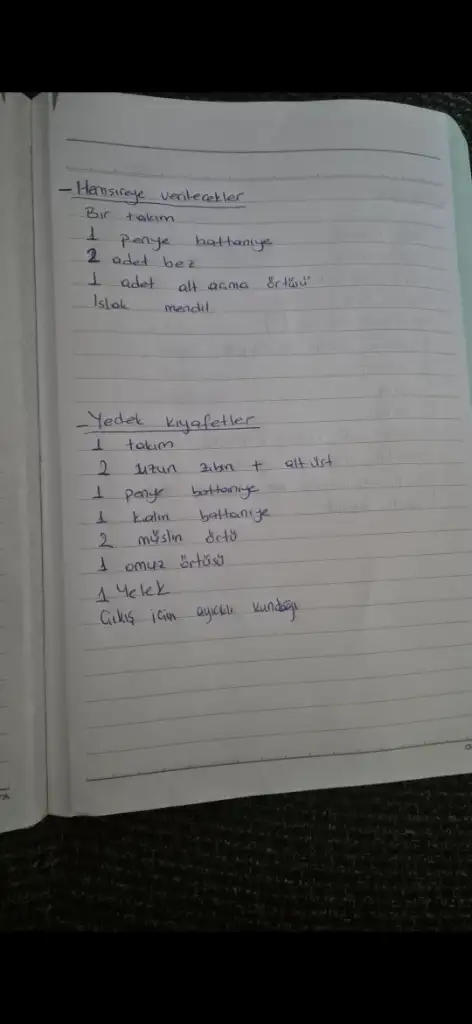 - Hemşireye verilecekler
Bir takım
1 penye battaniye
2 adet bez
1 adet alt açma örtüsü
Islak mendil
- Yedek kıyafetler
1 takım
2 uzun zıbın + alt üst
1 penye battaniye
1 kalın battaniye
2 müslin örtü
1 omuz örtüsü
1 Yelek
Çıkış için ayıcıklı kundağı